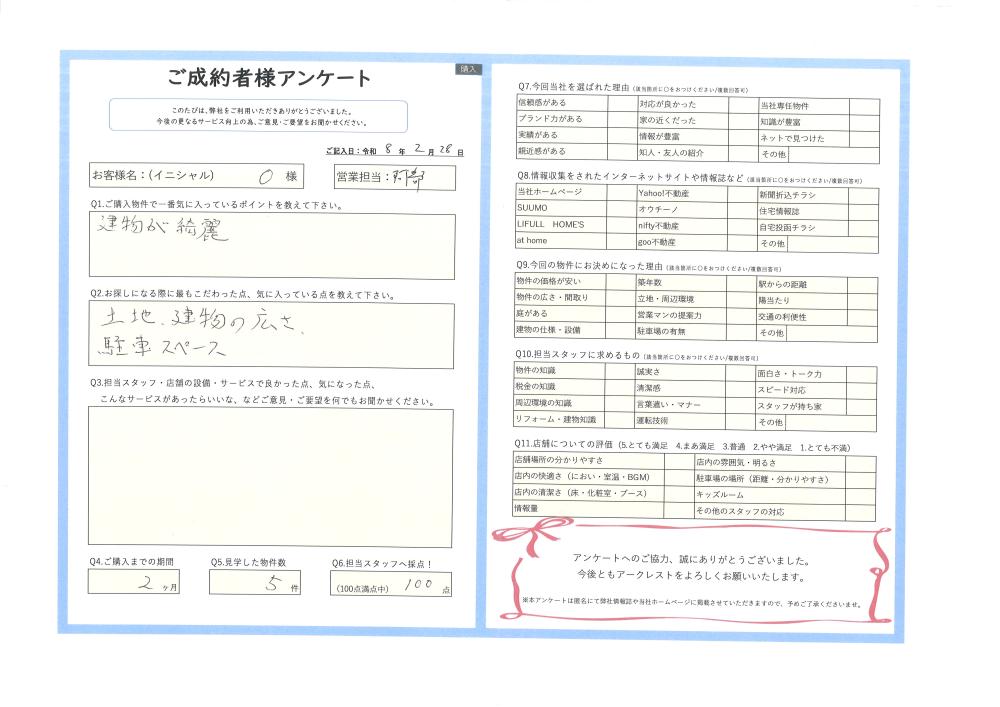 ご成約者様アンケート
購入
このたびは、弊社をご利用いただきありがとうございました。
今後の更なるサービス向上の為、ご意見・ご要望をお聞かせください。
ご記入日：令和 8 年 2 月 28 日
お客様名：(イニシャル) O 様
営業担当：阿部
Q1.ご購入物件で一番気に入っているポイントを教えて下さい。
建物が綺麗
Q2.お探しになる際に最もこだわった点、気に入っている点を教えて下さい。
土地、建物の広さ、
駐車スペース
Q3.担当スタッフ・店舗の設備・サービスで良かった点、気になった点、
こんなサービスがあったらいいな、などご意見・ご要望を何でもお聞かせください。
Q4.ご購入までの期間
2 ヶ月
Q5.見学した物件数
5 件
Q6.担当スタッフへ採点！
(100点満点中) 100 点
Q7.今回当社を選ばれた理由 (該当箇所に〇をおつけください/複数回答可)
信頼感がある 対応が良かった 当社専任物件
ブランド力がある 家の近くだった 知識が豊富
実績がある 情報が豊富 ネットで見つけた
親近感がある 知人・友人の紹介 その他
Q8.情報収集をされたインターネットサイトや情報誌など (該当箇所に〇をおつけください/複数回答可)
当社ホームページ Yahoo!不動産 新聞折込チラシ
SUUMO オウチーノ 住宅情報誌
LIFULL HOME'S nifty不動産 自宅投函チラシ
at home goo不動産 その他
Q9.今回の物件にお決めになった理由 (該当箇所に〇をおつけください/複数回答可)
物件の価格が安い 築年数 駅からの距離
物件の広さ・間取り 立地・周辺環境 陽当たり
庭がある 営業マンの提案力 交通の利便性
建物の仕様・設備 駐車場の有無 その他
Q10.担当スタッフに求めるもの (該当箇所に〇をおつけください/複数回答可)
物件の知識 誠実さ 面白さ・トーク力
税金の知識 清潔感 スピード対応
周辺環境の知識 言葉遣い・マナー スタッフが持ち家
リフォーム・建物知識 運転技術 その他
Q11.店舗についての評価 (5.とても満足 4.まあ満足 3.普通 2.やや満足 1.とても不満)
店舗場所の分かりやすさ 店内の雰囲気・明るさ
店内の快適さ（におい・室温・BGM） 駐車場の場所（距離・分かりやすさ）
店内の清潔さ（床・化粧室・ブース） キッズルーム
情報量 その他のスタッフの対応
アンケートへのご協力、誠にありがとうございました。
今後ともアークレストをよろしくお願いいたします。
※本アンケートは匿名にて弊社情報誌や当社ホームページに掲載させていただきますので、予めご了承くださいませ。